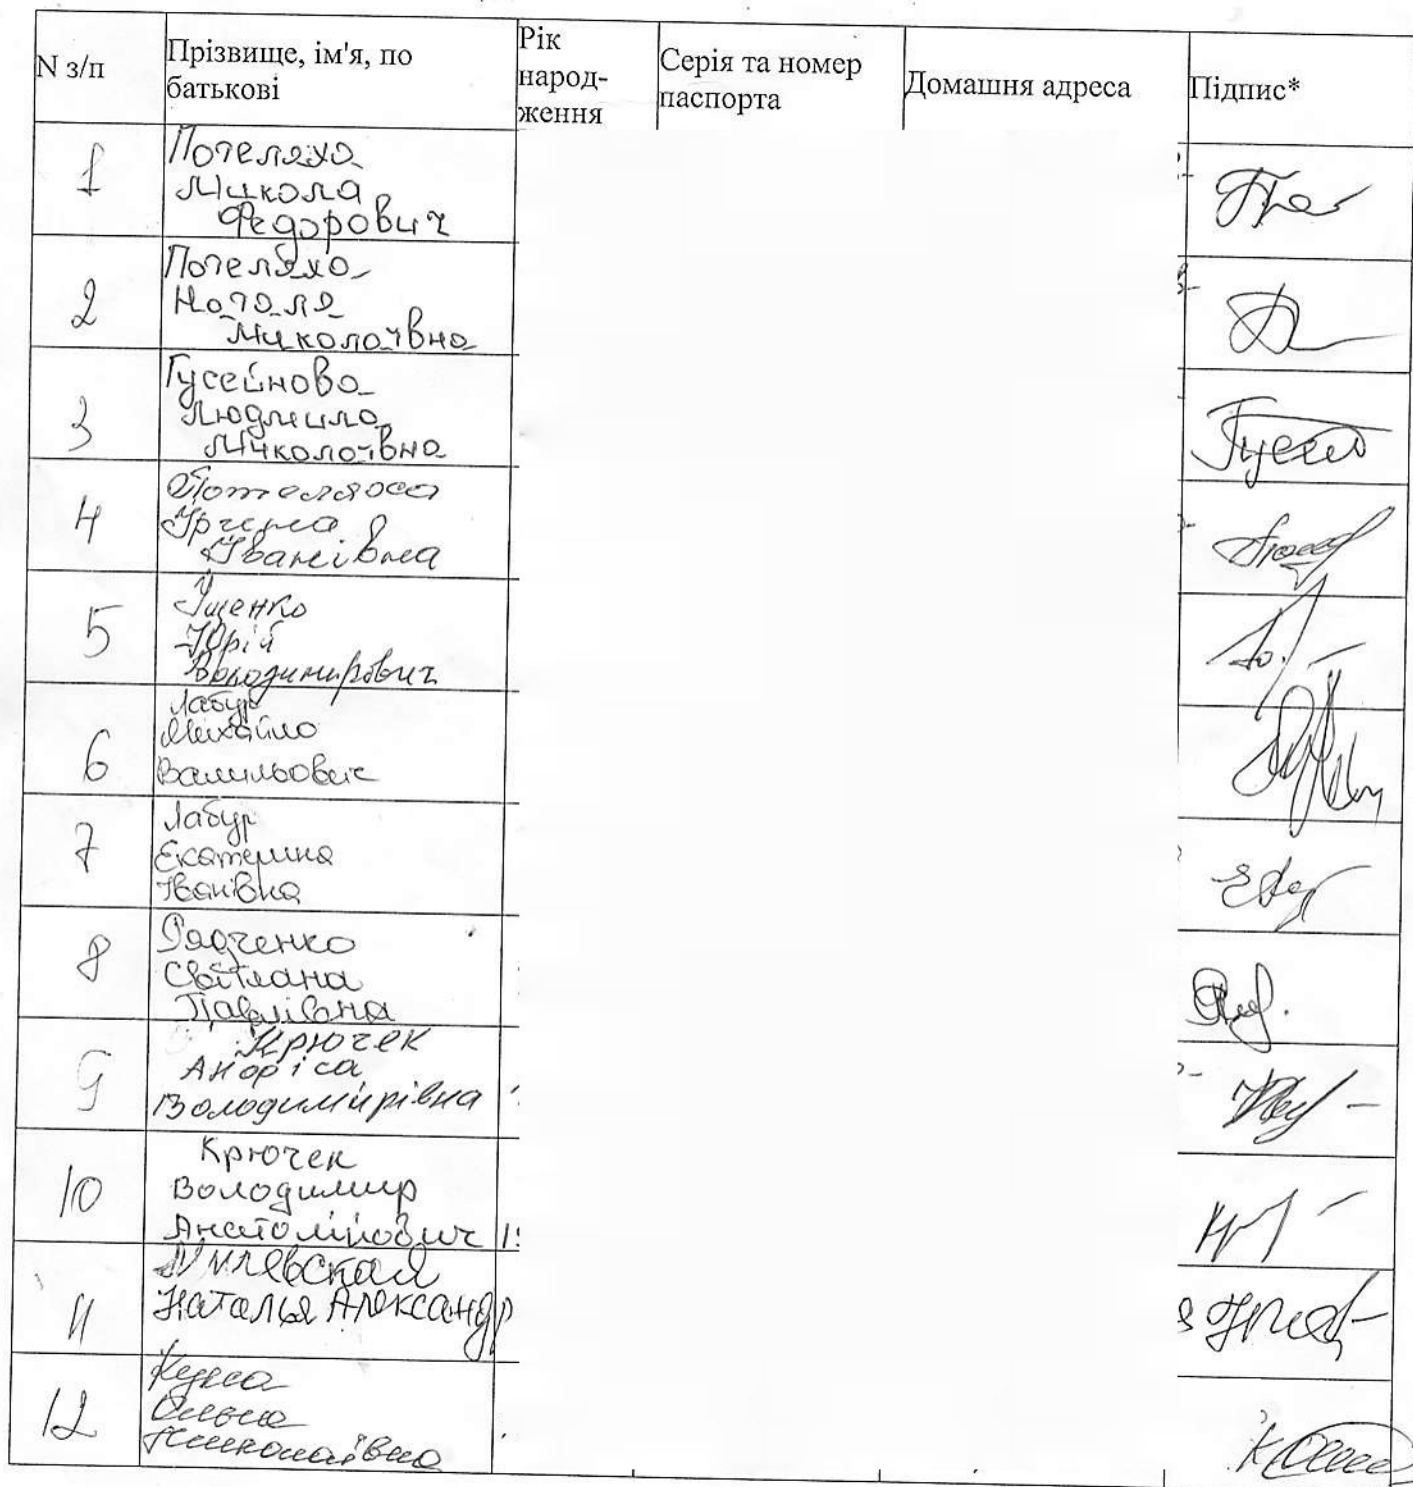 N з/п
Прізвище, ім'я, по
батькові
Рік
народ-
ження
Серія та номер
паспорта
Домашня адреса
Підпис*
1
Потеляхо
Микола
Федорович
2
Потеляхо
Наталя
Миколаївна
3
Гусейнова
Людмила
Миколаївна
4
Потеляхо
Ірина
Іванівна
5
Іщенко
Юрій
Володимирович
6
Лабур
Михайло
Васильович
7
Лабур
Екатерина
Іванівна
8
Радченко
Світлана
Павлівна
9
Крючек
Володимирівна
10
Крючек
Володимир
Анатолійович
11
Наталья Александр
12
Ольга
Николаївна